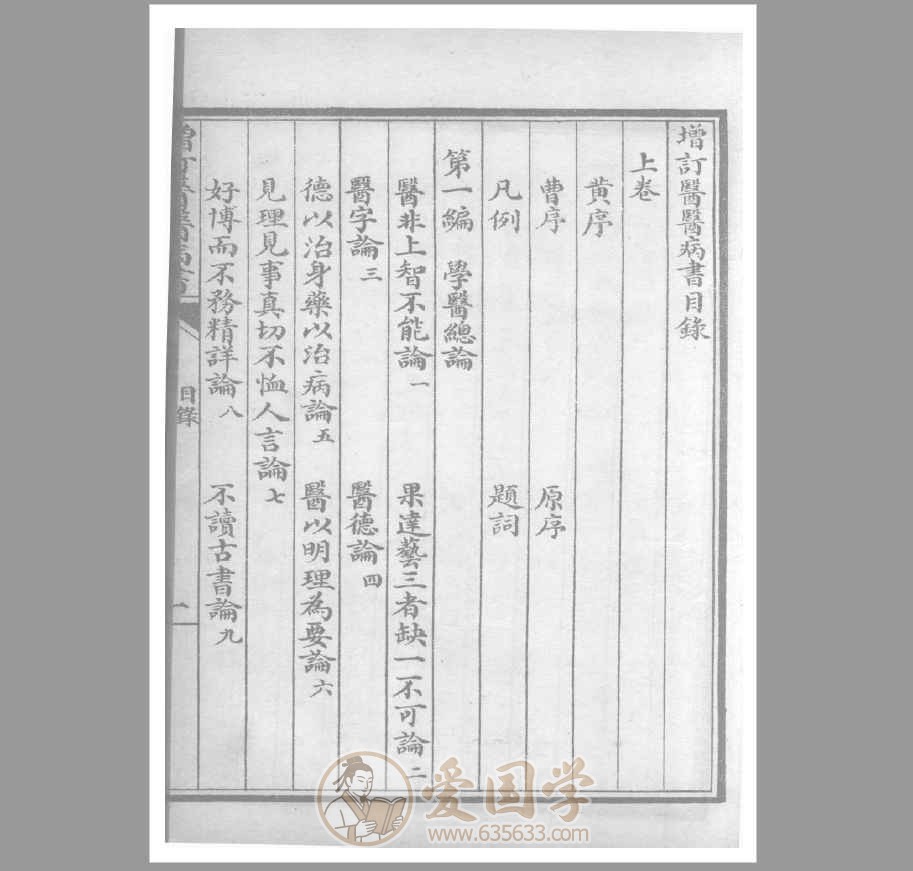 增訂醫醫病書目錄
上卷
黄序
曹序 原序
凡例 題詞
第一編 學醫總論
醫非上智不能論 一 果達藝三者缺一不可論 二
醫字論 三 醫德論 四
德以治身藥以治病論 五 醫以明理為要論 六
見理見事真切不恤人言論 七
好博而不務精詳論 八 不讀古書論 九
增訂醫醫病書 目錄 一
爱国学
www.635633.com